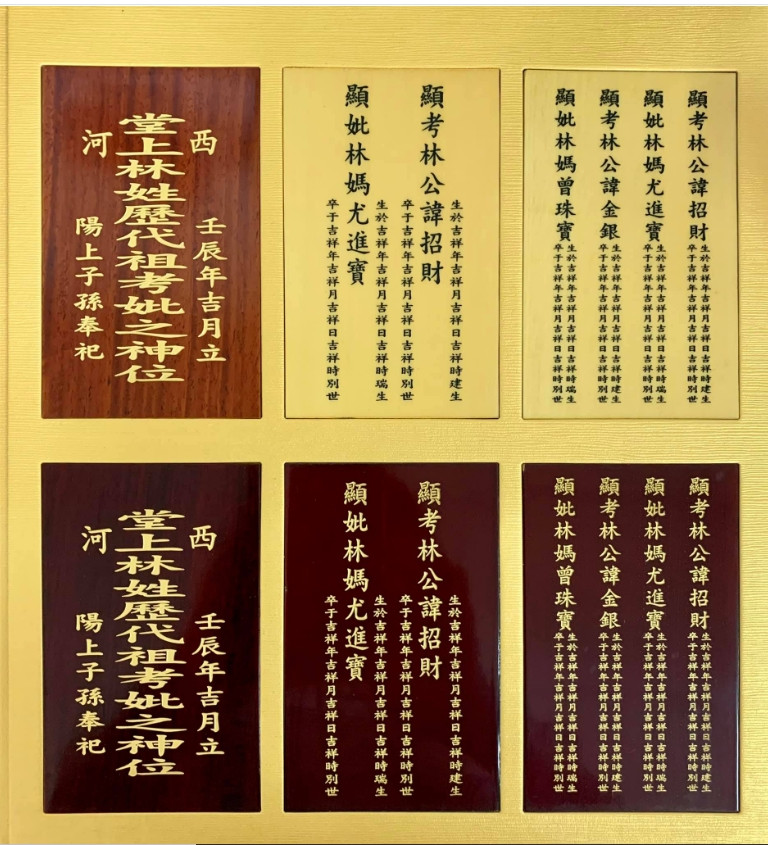 西河
堂上林姓歷代祖考妣之神位
壬辰年吉月立
陽上子孫奉祀
顯考林公諱招財
生於吉祥年吉祥月吉祥日吉祥時建生
卒于吉祥年吉祥月吉祥日吉祥時別世
顯妣林媽尤進寶
生於吉祥年吉祥月吉祥日吉祥時瑞生
卒于吉祥年吉祥月吉祥日吉祥時別世
顯考林公諱招財
生於吉祥年吉祥月吉祥日吉祥時建生
卒于吉祥年吉祥月吉祥日吉祥時別世
顯妣林媽尤進寶
生於吉祥年吉祥月吉祥日吉祥時瑞生
卒于吉祥年吉祥月吉祥日吉祥時別世
顯考林公諱金銀
生於吉祥年吉祥月吉祥日吉祥時建生
卒于吉祥年吉祥月吉祥日吉祥時別世
顯妣林媽曾珠寶
生於吉祥年吉祥月吉祥日吉祥時瑞生
卒于吉祥年吉祥月吉祥日吉祥時別世
西河
堂上林姓歷代祖考妣之神位
壬辰年吉月立
陽上子孫奉祀
顯考林公諱招財
生於吉祥年吉祥月吉祥日吉祥時建生
卒于吉祥年吉祥月吉祥日吉祥時別世
顯妣林媽尤進寶
生於吉祥年吉祥月吉祥日吉祥時瑞生
卒于吉祥年吉祥月吉祥日吉祥時別世
顯考林公諱招財
生於吉祥年吉祥月吉祥日吉祥時建生
卒于吉祥年吉祥月吉祥日吉祥時別世
顯妣林媽尤進寶
生於吉祥年吉祥月吉祥日吉祥時瑞生
卒于吉祥年吉祥月吉祥日吉祥時別世
顯考林公諱金銀
生於吉祥年吉祥月吉祥日吉祥時建生
卒于吉祥年吉祥月吉祥日吉祥時別世
顯妣林媽曾珠寶
生於吉祥年吉祥月吉祥日吉祥時瑞生
卒于吉祥年吉祥月吉祥日吉祥時別世